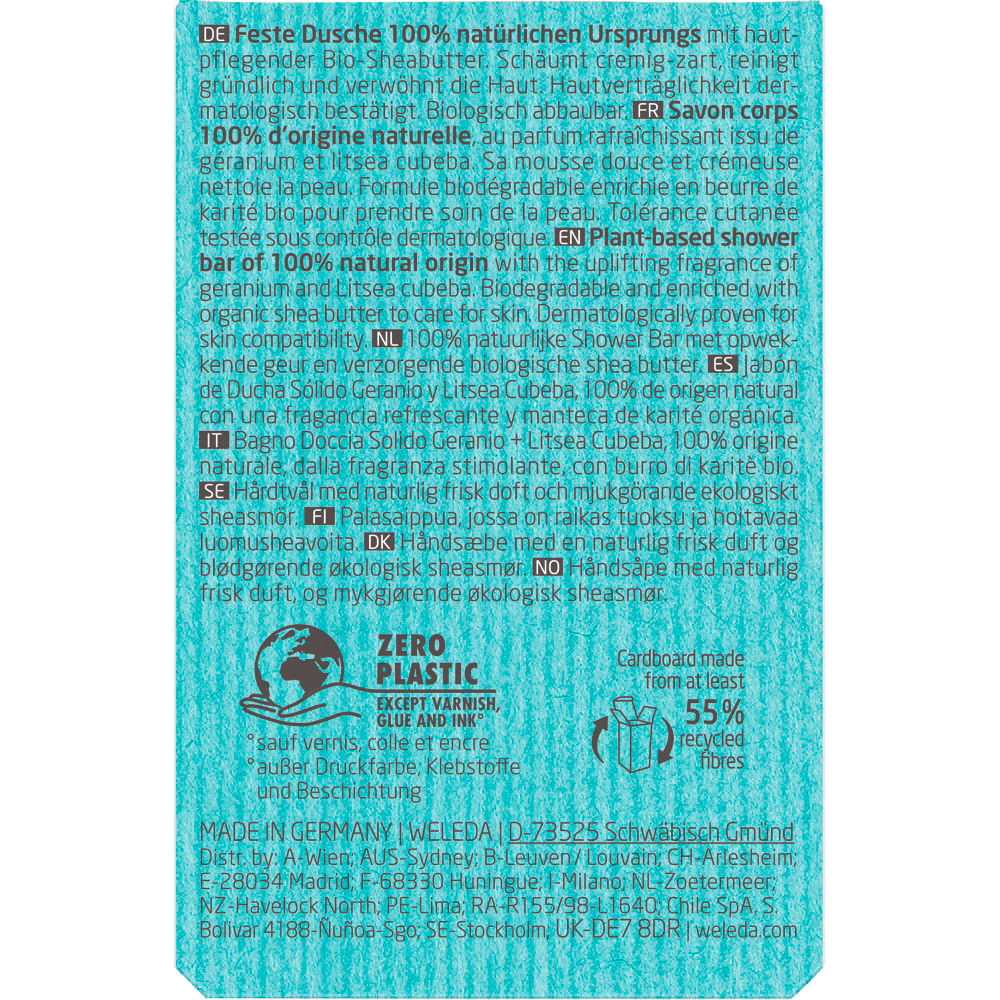 DE Feste Dusche 100% natürlichen Ursprungs mit haut-
pflegender Bio-Sheabutter. Schäumt cremig-zart, reinigt
gründlich und verwöhnt die Haut. Hautverträglichkeit der-
matologisch bestätigt. Biologisch abbaubar. FR Savon corps
100% d'origine naturelle, au parfum rafraîchissant issu de
géranium et litsea cubeba. Sa mousse douce et crémeuse
nettoie la peau. Formule biodégradable enrichie en beurre de
karité bio pour prendre soin de la peau. Tolérance cutanée
testée sous contrôle dermatologique. EN Plant-based shower
bar of 100% natural origin with the uplifting fragrance of
geranium and Litsea cubeba. Biodegradable and enriched with
organic shea butter to care for skin. Dermatologically proven for
skin compatibility. NL 100% natuurlijke Shower Bar met opwek-
kende geur en verzorgende biologische shea butter. ES Jabón
de Ducha Sólido Geranio y Litsea Cubeba, 100% de origen natural
con una fragancia refrescante y manteca de karité orgánica.
IT Bagno Doccia Solido Geranio + Litsea Cubeba, 100% origine
naturale, dalla fragranza stimolante, con burro di karitè bio.
SE Hårdtvål med naturlig frisk doft och mjukgörande ekologiskt
sheasmör. FI Palasaippua, jossa on raikas tuoksu ja hoitavaa
luomusheavoita. DK Håndsæbe med en naturlig frisk duft og
blødgørende økologisk sheasmør. NO Håndsåpe med naturlig
frisk duft, og mykgjørende økologisk sheasmør.
ZERO
PLASTIC
EXCEPT VARNISH,
GLUE AND INK°
°sauf vernis, colle et encre
°außer Druckfarbe, Klebstoffe
und Beschichtung
Cardboard made
from at least
55%
recycled
fibres
MADE IN GERMANY | WELEDA | D-73525 Schwäbisch Gmünd
Distr. by: A-Wien; AUS-Sydney; B-Leuven / Louvain; CH-Arlesheim;
E-28034 Madrid; F-68330 Huningue; I-Milano; NL-Zoetermeer;
NZ-Havelock North; PE-Lima; RA-R155/98-L1640; Chile SpA. S.
Bolívar 4188-Ñuñoa-Sgo; SE-Stockholm; UK-DE7 8DR | weleda.com